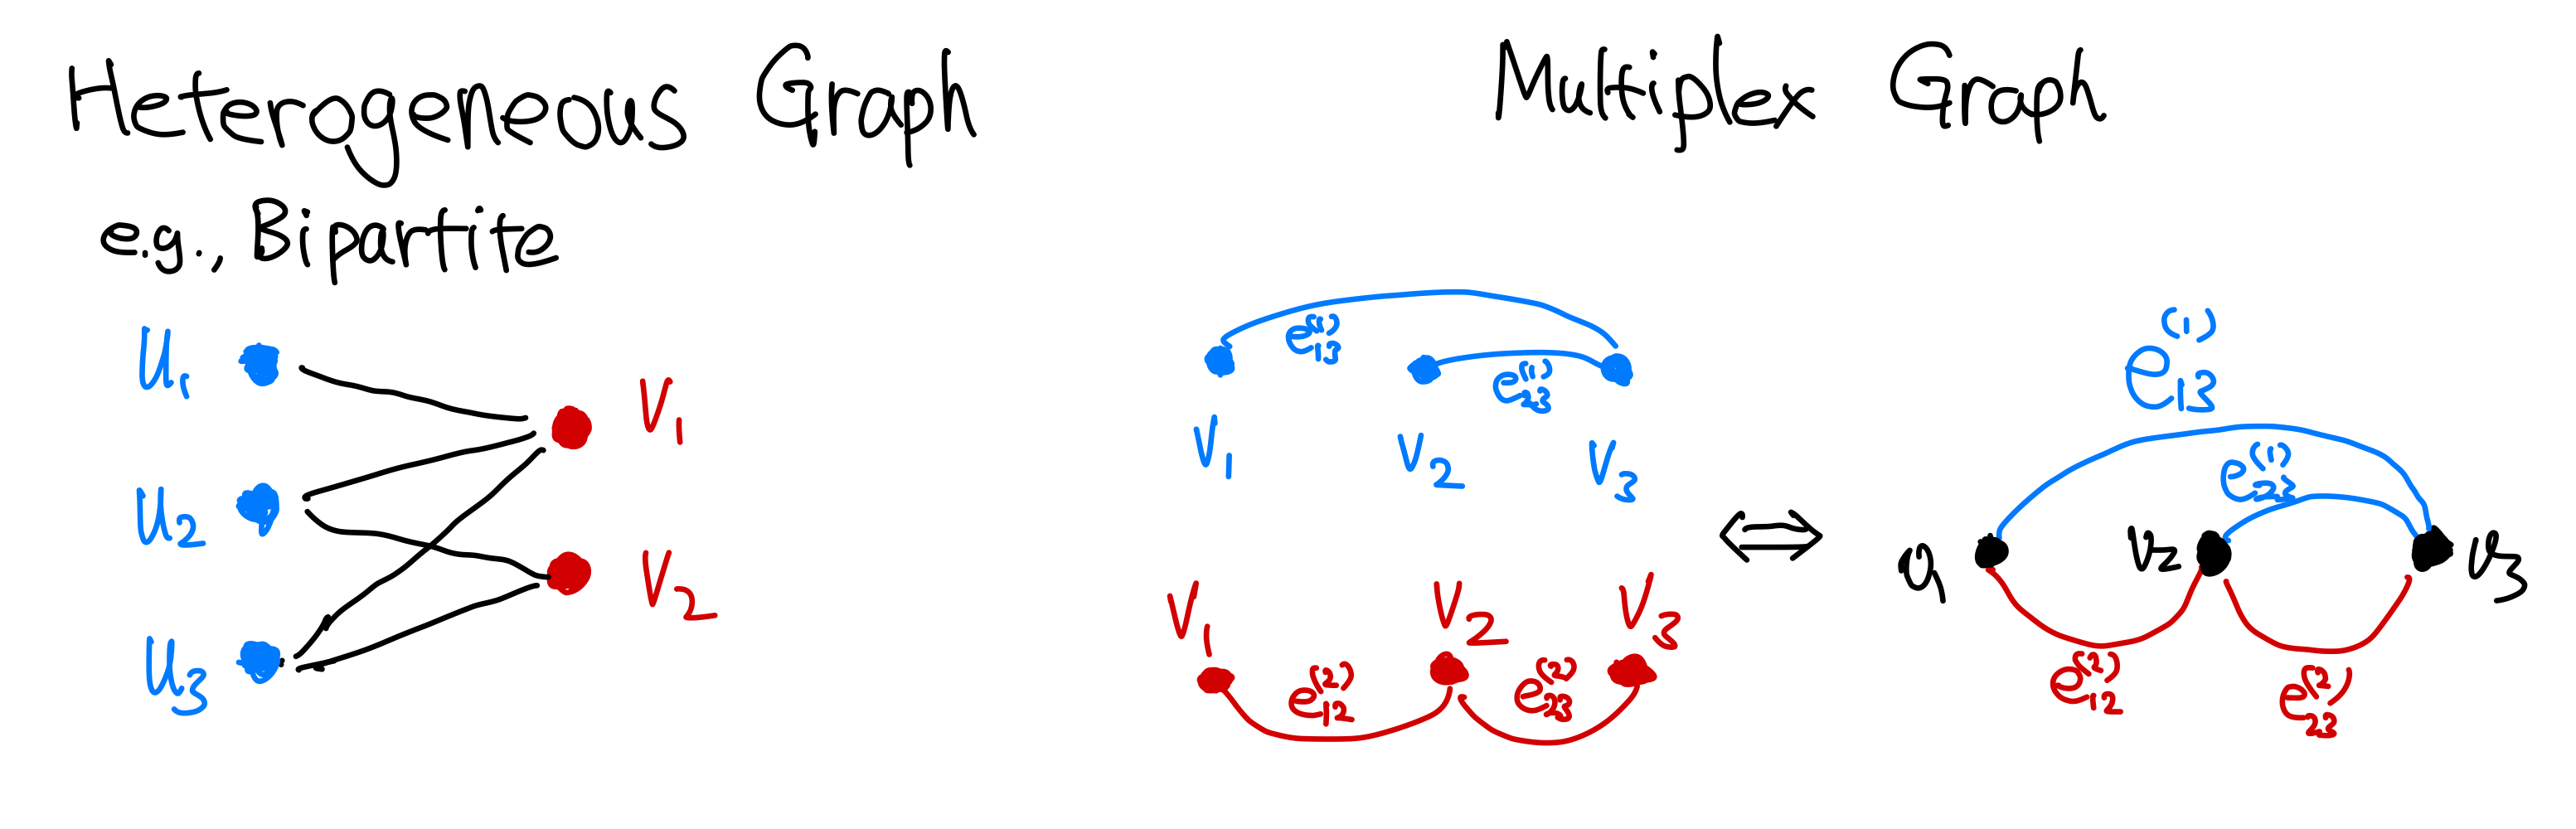 Heterogeneous Graph
e.g., Bipartite
u₁
u₂
u₃
V₁
V₂
Multiplex Graph
e₁₃⁽¹⁾
e₂₃⁽¹⁾
V₁ V₂ V₃
V₁ V₂ V₃
e₁₂⁽²⁾ e₂₃⁽²⁾
⇔
e₁₃⁽¹⁾
e₂₃⁽¹⁾
v₁ v₂ v₃
e₁₂⁽²⁾ e₂₃⁽²⁾